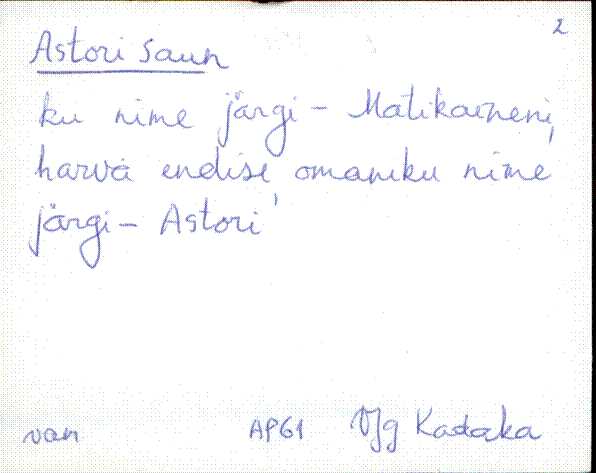 2
Astori saun
ku nime järgi - Matikaineni,
harva endise omaniku nime
järgi - Astori
van AP61 Vjg Kadaka